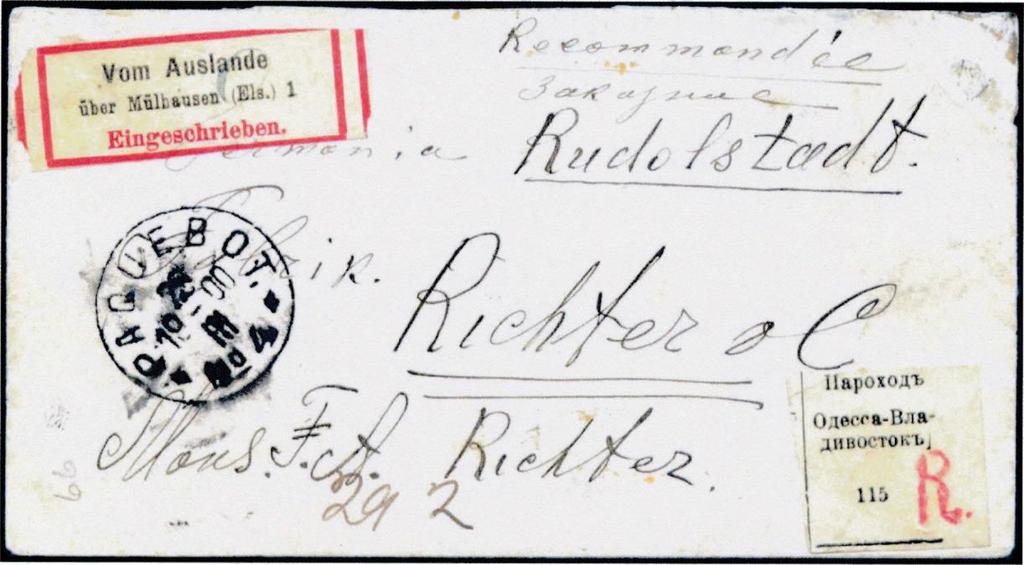 Vom Auslande
über Mülhausen (Els.) 1
Eingeschrieben.
Recommandée
Заказное
Germania
Rudolstadt.
Fabrik.
PAQUEBOT.
No 4
Richter & C
Mons. F. Ad. Richter.
29 2
66
Пароходъ
Одесса-Вла-
дивостокъ
115
R.